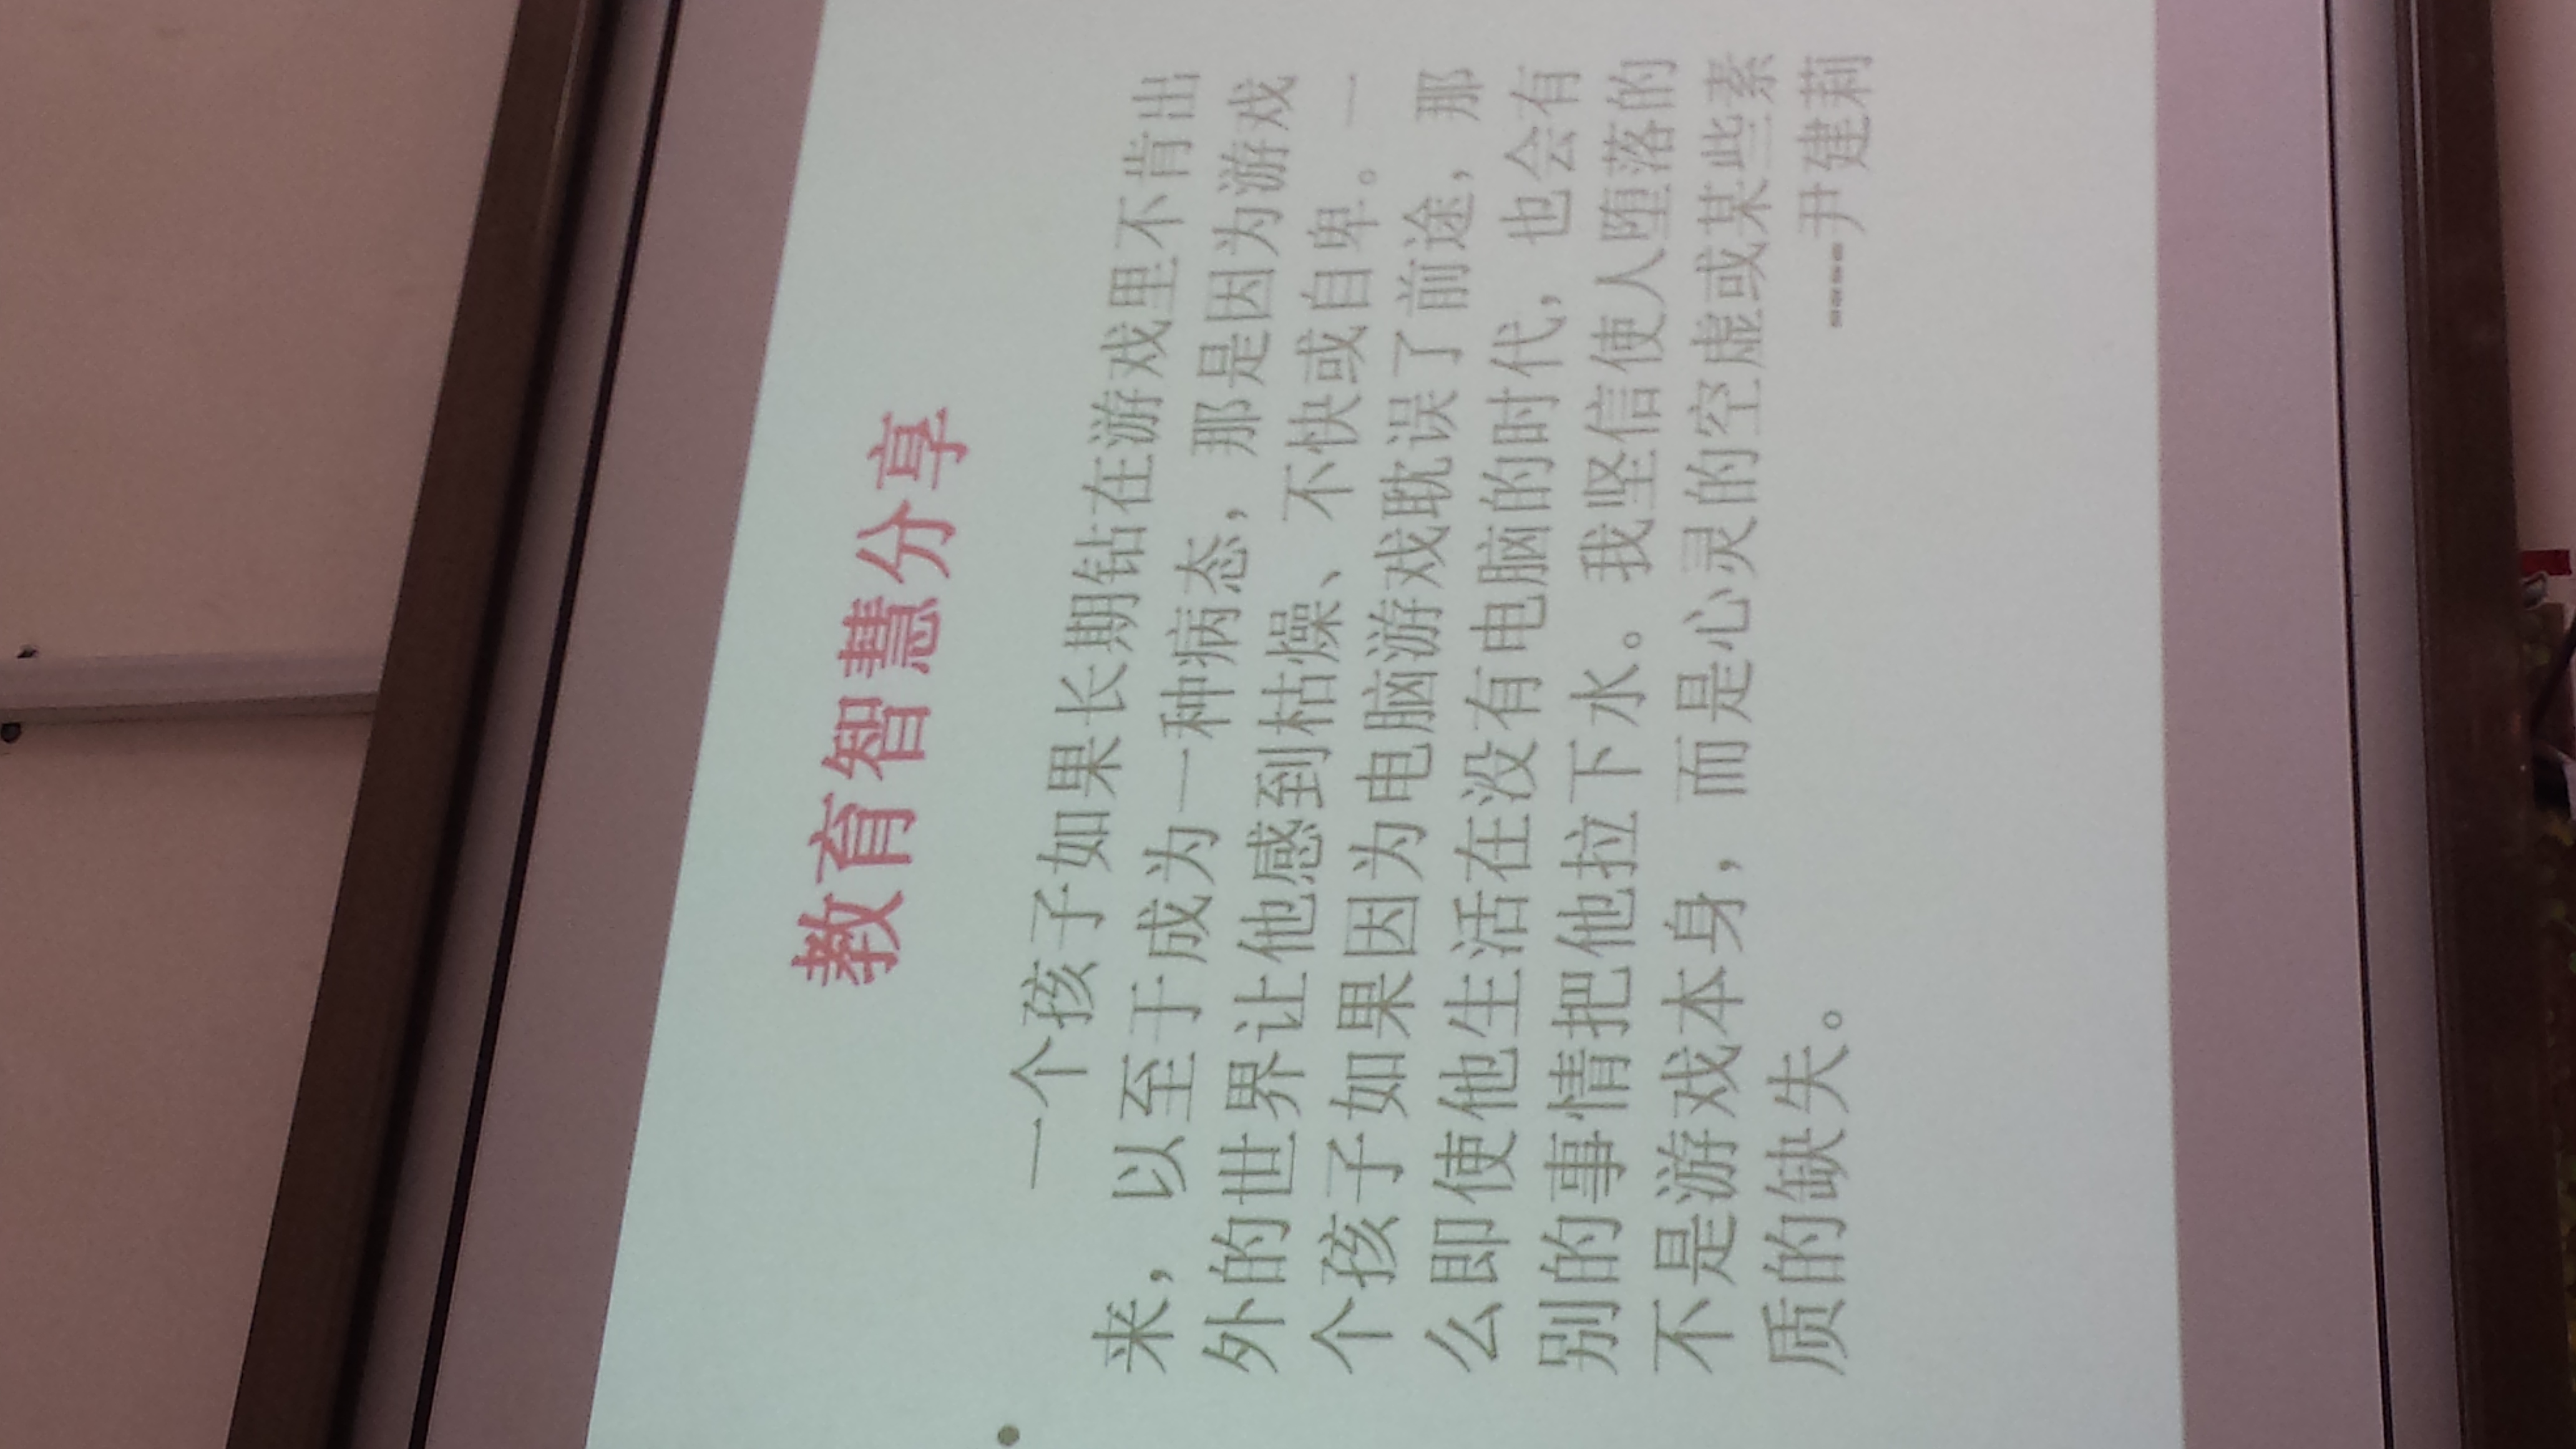 教育智慧分享
• 一个孩子如果长期钻在游戏里不肯出
来，以至于成为一种病态，那是因为游戏
外的世界让他感到枯燥、不快或自卑。一
个孩子如果因为电脑游戏耽误了前途，那
么即使他生活在没有电脑的时代，也会有
别的事情把他拉下水。我坚信使人堕落的
不是游戏本身，而是心灵的空虚或某些素
质的缺失。 -----尹建莉